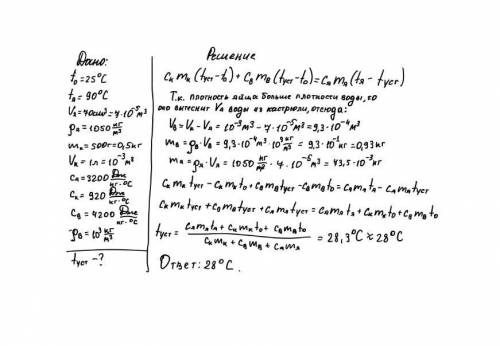 Дано:
t₀=25°C
tя=90°C
Vя=70см³=7·10⁻⁵м³
ρя=1050 кг/м³
mк=500г=0,5кг
Vк=1л=10⁻³м³
Cя=3200 Дж/кг·°C
Cк=920 Дж/кг·°C
Cв=4200 Дж/кг·°C
ρв=10³ кг/м³
tуст-?
Решение
Cкmк(tуст-t₀)+Cвmв(tуст-t₀)=Cяmя(tя-tуст)
Т.к. плотность яйца больше плотности воды, то
оно вытеснит Vя воды из кастрюли, отсюда:
Vв=Vк-Vя=10⁻³м³-7·10⁻⁵м³=9,3·10⁻⁴м³
mв=ρв·Vв=9,3·10⁻⁴м³·10³ кг/м³=9,3·10⁻¹кг=0,93кг
mя=ρя·Vя=1050 кг/м³·7·10⁻⁵м³=73,5·10⁻³кг
Cкmкtуст-Cкmкt₀+Cвmвtуст-Cвmвt₀=Cяmяtя-Cяmяtуст
Cкmкtуст+Cвmвtуст+Cяmяtуст=Cяmяtя+Cкmкt₀+Cвmвt₀
tуст=(Cяmяtя+Cкmкt₀+Cвmвt₀)/(Cкmк+Cвmв+Cяmя)=28,3°C≈28°C
Ответ: 28°C.